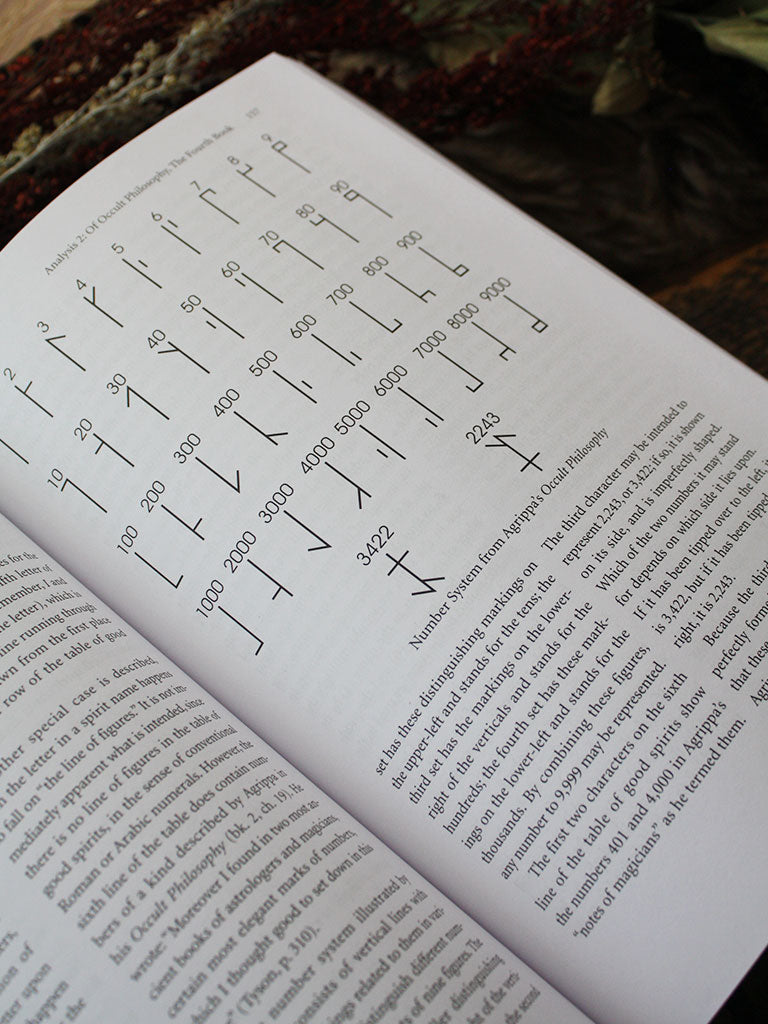 for the
fifth letter of
remember, I and
letter), which is
line running through
from the first place
row of the table of good
other special case is described,
the letter in a spirit name happens
fall on "the line of figures." It is not im-
mediately apparent what is intended, since
there is no line of figures in the table of
good spirits, in the sense of conventional
Roman or Arabic numerals. However, the
sixth line of the table does contain num-
bers of a kind described by Agrippa in
his Occult Philosophy (bk. 2, ch. 19). He
wrote: "Moreover I found in two most an-
cient books of astrologers and magicians,
certain most elegant marks of numbers,
which I thought good to set down in this
(Tyson, p. 310).
number system illustrated by
consists of vertical lines with
related to them in var-
distinguish different num-
of nine figures. The
distinguishing
of the verti-
the second
Analysis 2: Of Occult Philosophy, The Fourth Book 137
2 3 4 5 6 7 8 9
10 20 30 40 50 60 70 80 90
100 200 300 400 500 600 700 800 900
1000 2000 3000 4000 5000 6000 7000 8000 9000
3422 2243
Number System from Agrippa's Occult Philosophy
set has these distinguishing markings on
the upper-left and stands for the tens; the
third set has the markings on the lower-
right of the verticals and stands for the
hundreds; the fourth set has these mark-
ings on the lower-left and stands for the
thousands. By combining these figures,
any number to 9,999 may be represented.
The first two characters on the sixth
line of the table of good spirits show
the numbers 401 and 4,000 in Agrippa's
"notes of magicians" as he termed them.
The third character may be intended to
represent 2,243, or 3,422; if so, it is shown
on its side, and is imperfectly shaped.
Which of the two numbers it may stand
for depends on which side it lies upon.
If it has been tipped over to the left, it
is 3,422, but if it has been tipped
right, it is 2,243.
Because the third
perfectly formed
that these